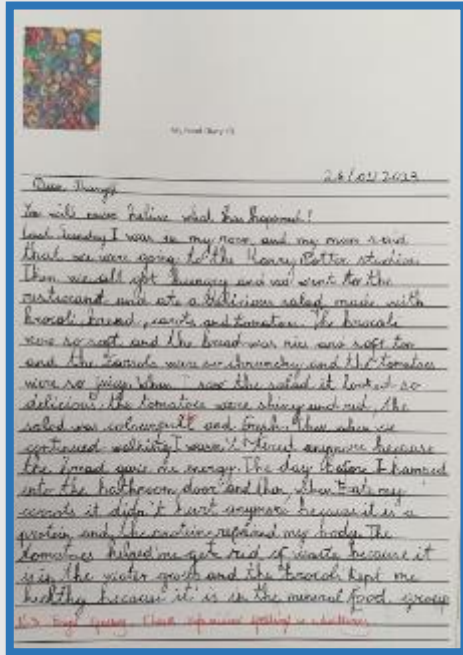 My Food Diary
Dear Diary,
You will never believe what has happened!
Last Sunday I was in my room and my mum said
that we were going to the Harry Potter studios.
Then we all got hungry and we went to the
restaurant and ate a delicious salad made with
brocoli, bread, carots and tomatoes. The brocoli
were so soft and the bread was nice and soft too
and the were so chrunchy and the tomatoes
were so juicy. When I saw the salad it looked so
delicious: the tomatoes were shiny and red, the
salad was and fresh. Then when we
continued walking I wasn't tired anymore because
the bread gave me energy. The day before I bamped
into the bathroom door and then when I ate my
carrots it didn't hurt anymore because it is a
protein and the proteins repaired my body. The
tomatoes helped me get rid of waste because it
is in the water group and the brocoli kept me
healthy because it is in the mineral food group